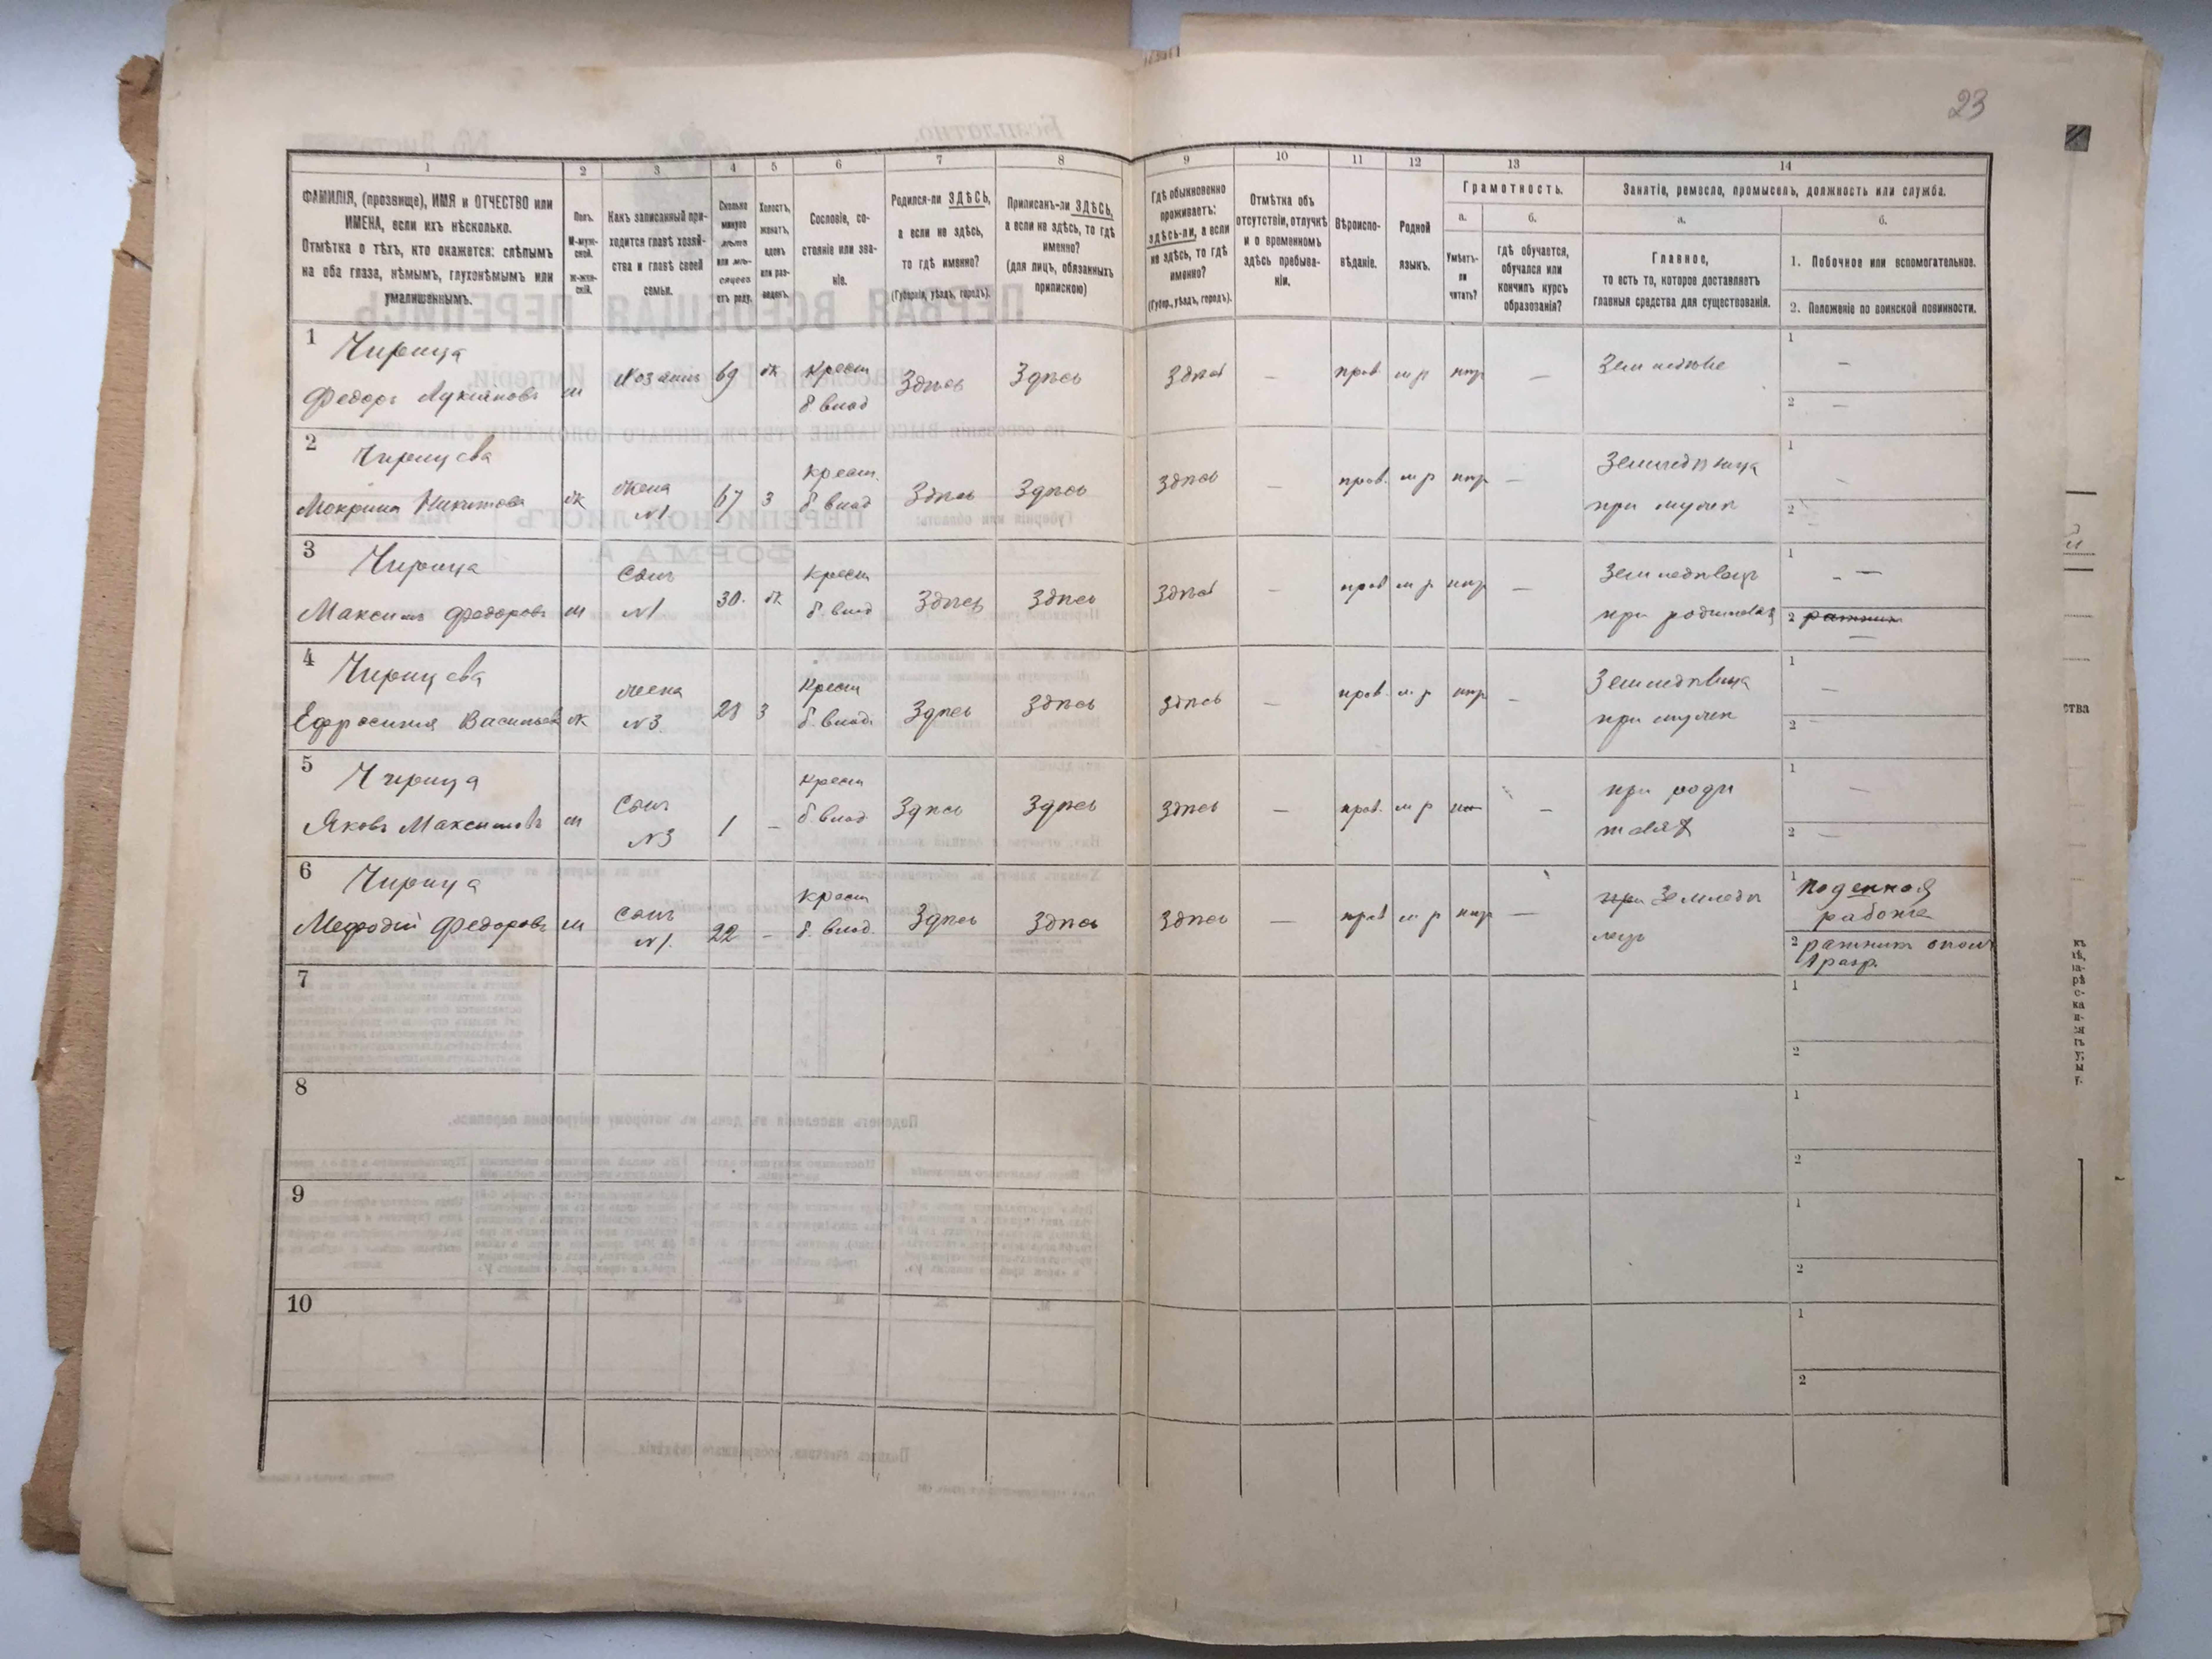 23
1 2 3 4 5 6 7 8 9 10 11 12 13 14
ФАМИЛІЯ, (прозвище), ИМЯ и ОТЧЕСТВО или
ИМЕНА, если ихъ нѣсколько.
Отмѣтка о тѣхъ, кто окажется: слѣпымъ
на оба глаза, нѣмымъ, глухонѣмымъ или
умалишеннымъ.
Полъ.
М-муж-
ской.
Ж-жен-
скій.
Какъ записанный при-
ходится главѣ хозяй-
ства и главѣ своей
семьи.
Сколько
минуло
лѣтъ
или мѣ-
сяцевъ
отъ роду.
Холостъ,
женатъ,
вдовъ
или раз-
веденъ.
Сословіе, со-
стояніе или зва-
ніе.
Родился-ли ЗДѢСЬ,
а если не здѣсь,
то гдѣ именно?
(Губернія, уѣздъ, городъ).
Приписанъ-ли ЗДѢСЬ,
а если не здѣсь, то гдѣ
именно?
(для лицъ, обязанныхъ
припискою)
Гдѣ обыкновенно
проживаетъ:
здѣсь-ли, а если
не здѣсь, то гдѣ
именно?
(Губер., уѣздъ, городъ).
Отмѣтка объ
отсутствіи, отлучкѣ
и о временномъ
здѣсь пребыва-
ніи.
Вѣроиспо-
вѣданіе.
Родной
языкъ.
Грамотность.
а. б.
Умѣетъ-
ли
читать?
гдѣ обучается,
обучался или
кончилъ курсъ
образованія?
Занятіе, ремесло, промыселъ, должность или служба.
а. б.
Главное,
то есть то, которое доставляетъ
главныя средства для существованія.
1. Побочное или вспомогательное.
2. Положеніе по воинской повинности.
1 Чирица
Федоръ Лукіяновъ м Хозяинъ 69 ж Крест
б. влад Здѣсь Здѣсь Здѣсь — прав м р нѣт — 1 —
2 —
2 Чирицева
Мокрина Никитова ж жена
№1 67 з Крест.
б. влад Здѣсь Здѣсь Здѣсь — прав. м р нѣт — Земледѣлица
при мужѣ 1 -
2 -
3 Чирица
Максимъ Федоровъ м Сынъ
№1 30. ж Крест
б. влад Здѣсь Здѣсь Здѣсь — прав м р нѣт — Земледѣлецъ
при родителяхъ 1 —
2 ратникъ —
4 Чирицева
Ефросинія Васильев ж жена
№3. 28 з Крест
б. влад. Здѣсь Здѣсь Здѣсь — прав. м р нѣт — Земледѣлица
при мужѣ 1 —
2 —
5 Чирица
Яковъ Максимовъ м Сынъ
№3 1 — Крест
б. влад Здѣсь Здѣсь Здѣсь — прав. м р — при роди
теляхъ 1 —
2 —
6 Чирица
Мефодій Федоровъ м Сынъ
№1. 22 — Крест
б. влад. Здѣсь Здѣсь Здѣсь — прав м р нѣт — при Земледѣ
лецъ 1 поденная
работа
2 ратникъ опол
1 разр.
7 1
2
8 1
2
9 1
2
10 1
2